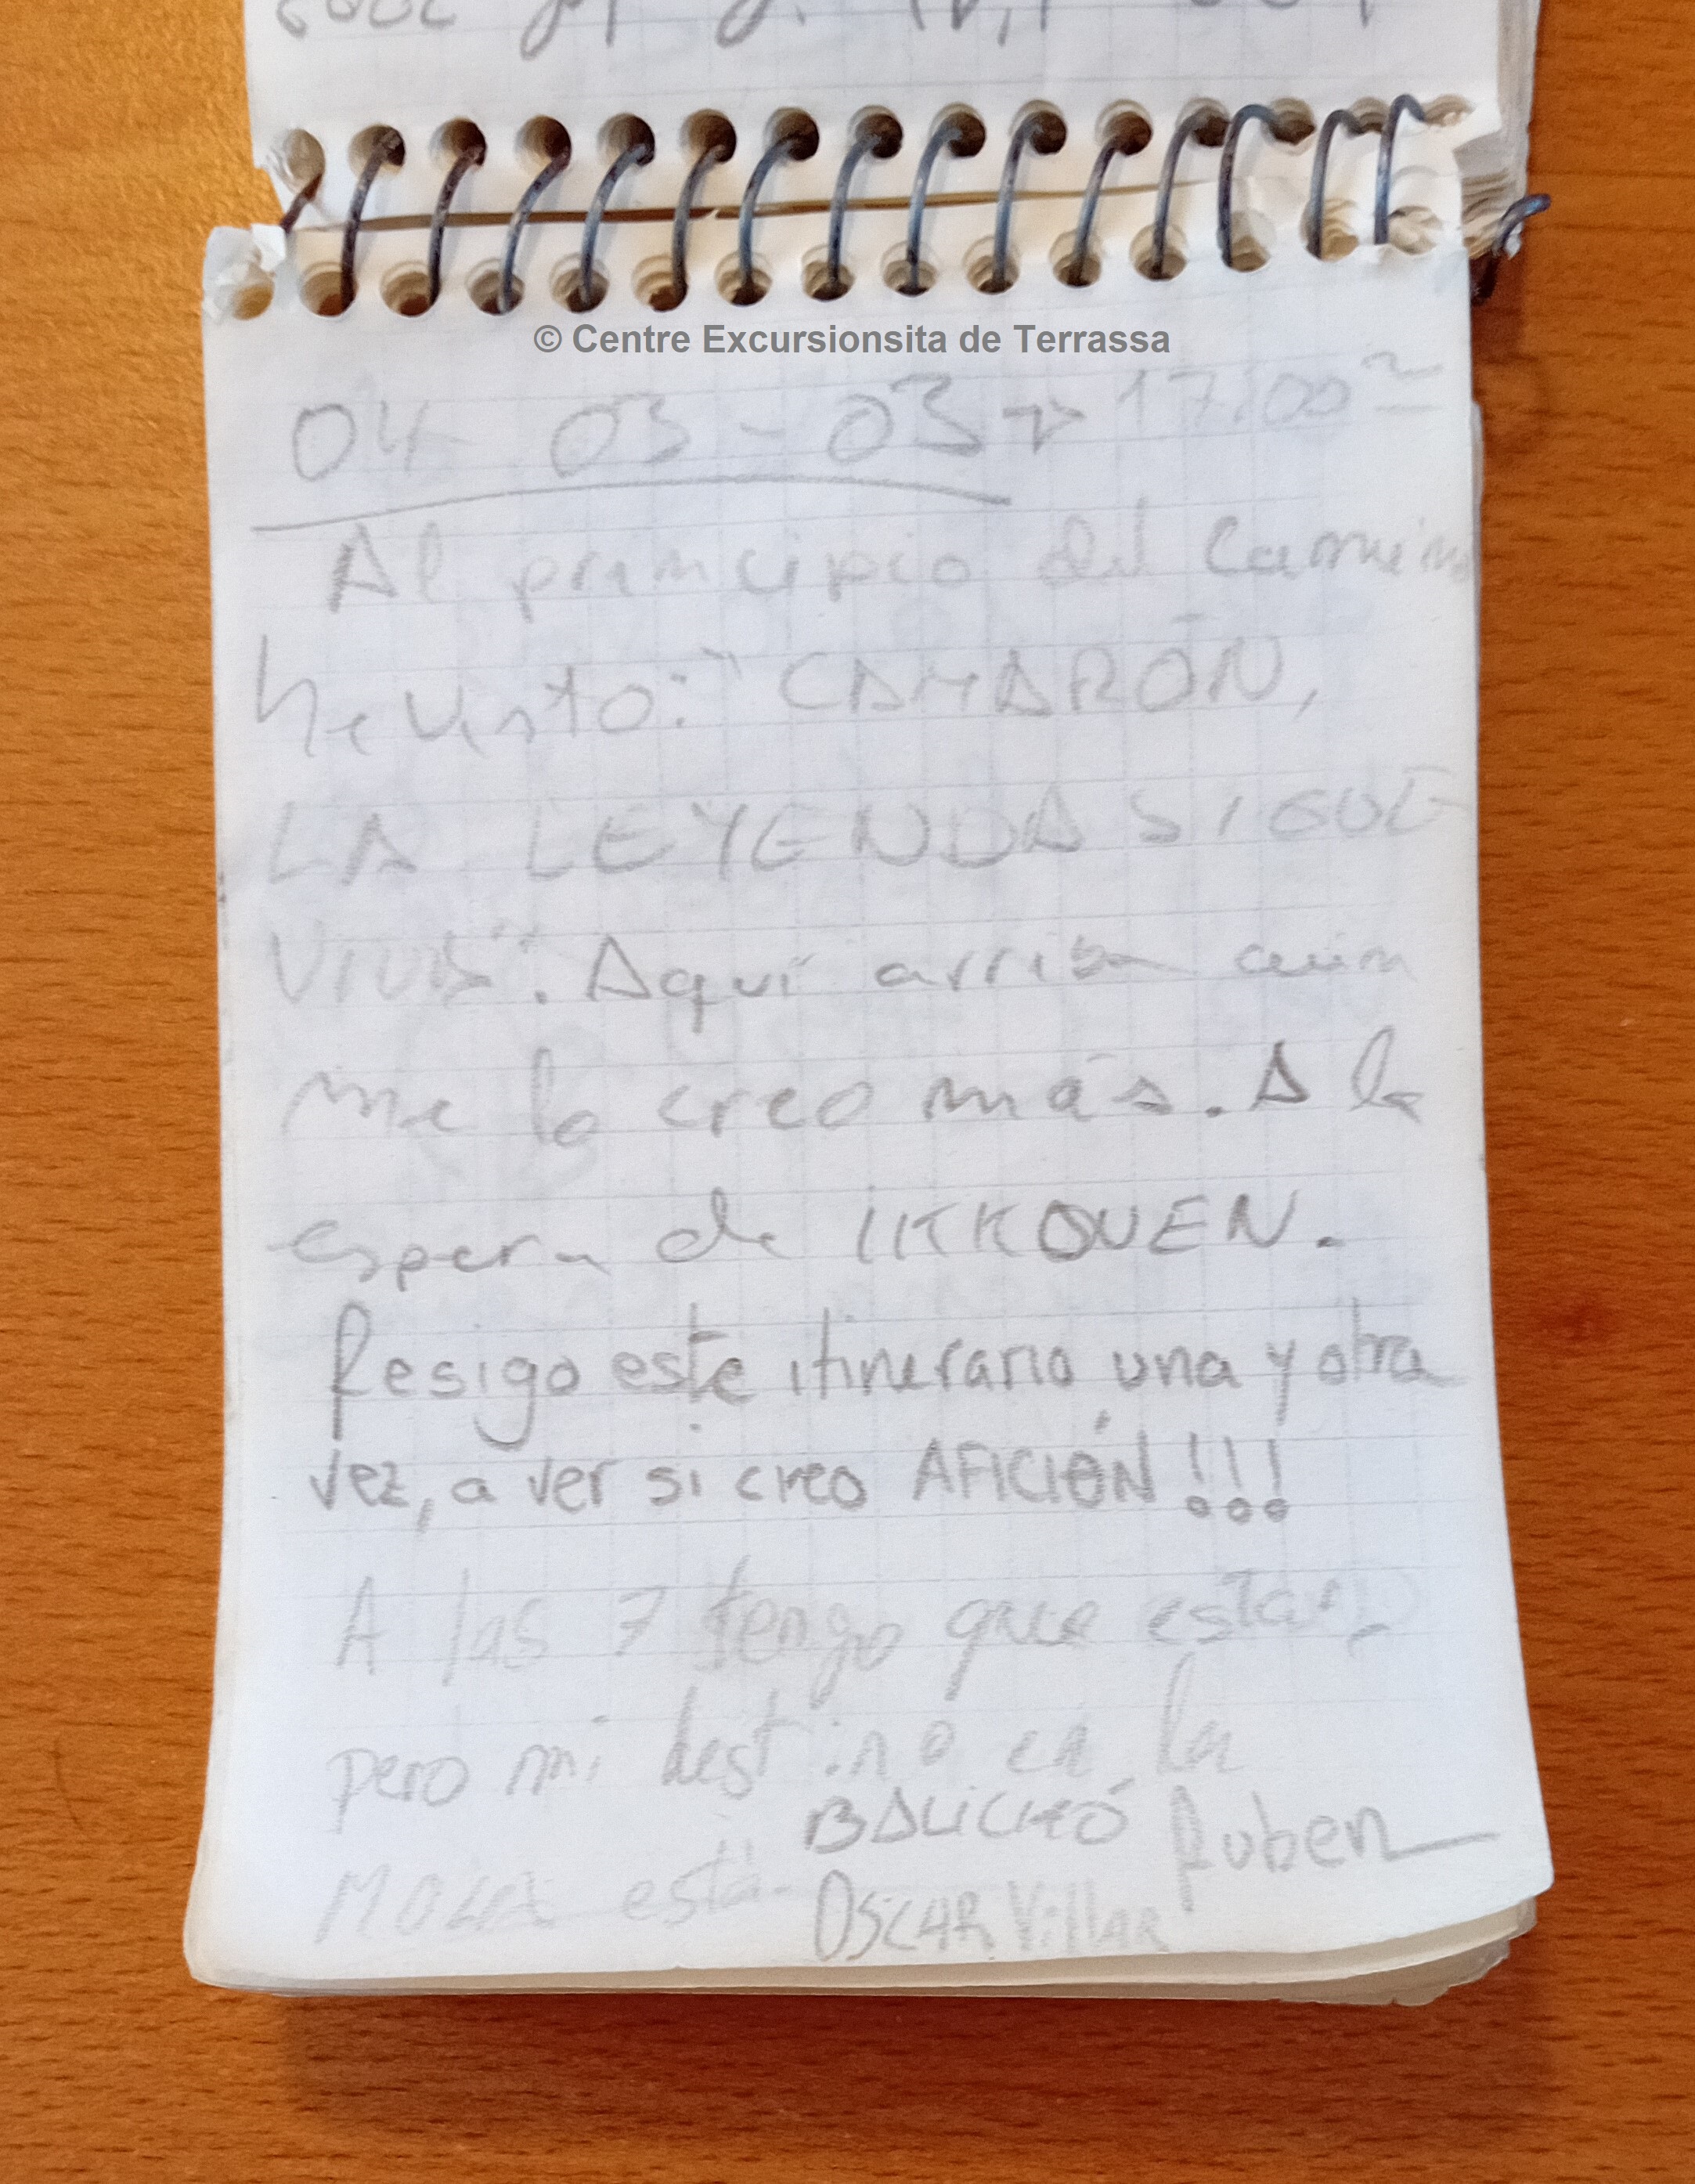 © Centre Excursionsita de Terrassa
04 03 - 03 → 17:00
Al principio del Camino
he visto: "CAMARÓN,
LA LEYENDA SIGUE
VIVA". Aquí arriba aún
me lo creo más. A la
espera de IKKOUEN.
Resigo este itinerario una y otra
vez, a ver si creo AFICIÓN!!!
A las 7 tengo que estar,
pero mi destino en la
está.
BALICHÓ
Ruben
OSCAR VillAR